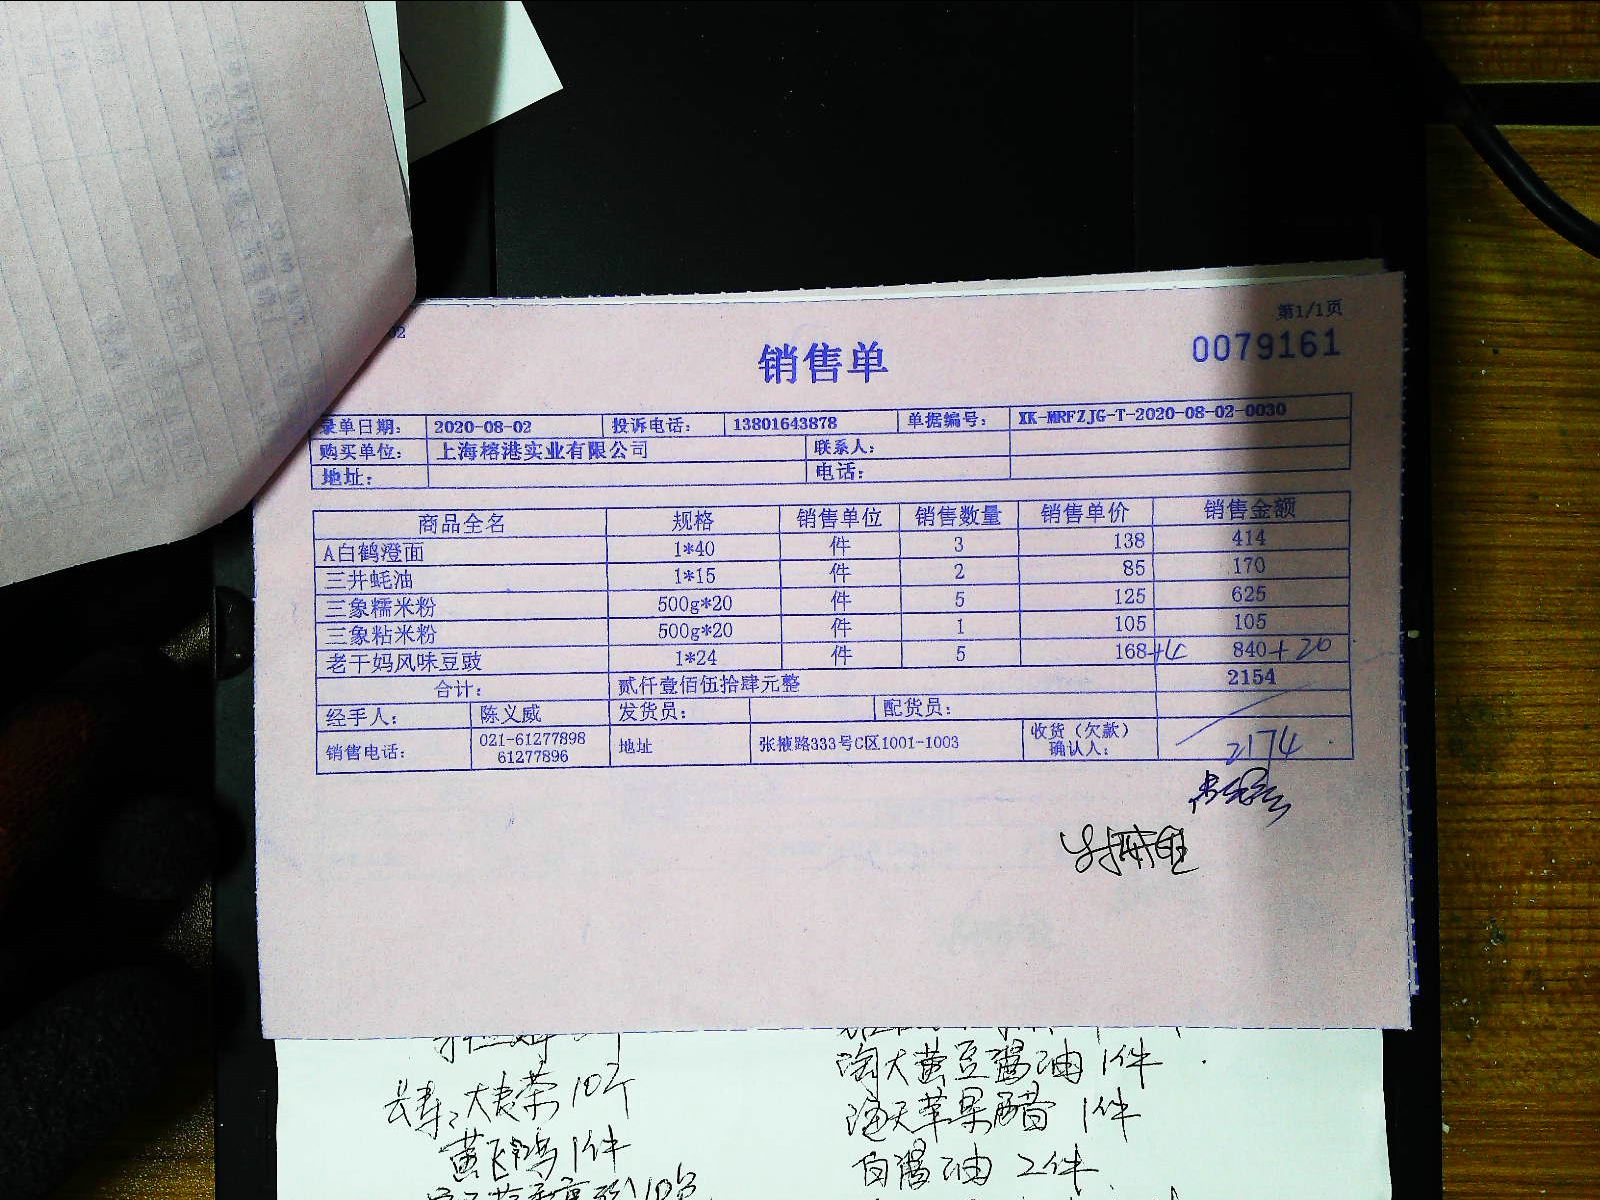 第1/1页
02
销售单
0079161
录单日期: 2020-08-02 投诉电话: 13801643878 单据编号: XK-MRFZJG-T-2020-08-02-0030
购买单位: 上海榕港实业有限公司 联系人:
地址: 电话:
商品全名 规格 销售单位 销售数量 销售单价 销售金额
A白鹤澄面 1*40 件 3 138 414
三井蚝油 1*15 件 2 85 170
三象糯米粉 500g*20 件 5 125 625
三象粘米粉 500g*20 件 1 105 105
老干妈风味豆豉 1*24 件 5 168+4 840+20
合计: 贰仟壹佰伍拾肆元整 2154
经手人: 陈义威 发货员: 配货员:
销售电话: 021-61277898 61277896 地址 张掖路333号C区1001-1003 收货(欠款)确认人: 2174
淘大黄豆酱油 1件
大麦茶 10个
海天苹果醋 1件
黄飞鸿 1件
白酱油 2件